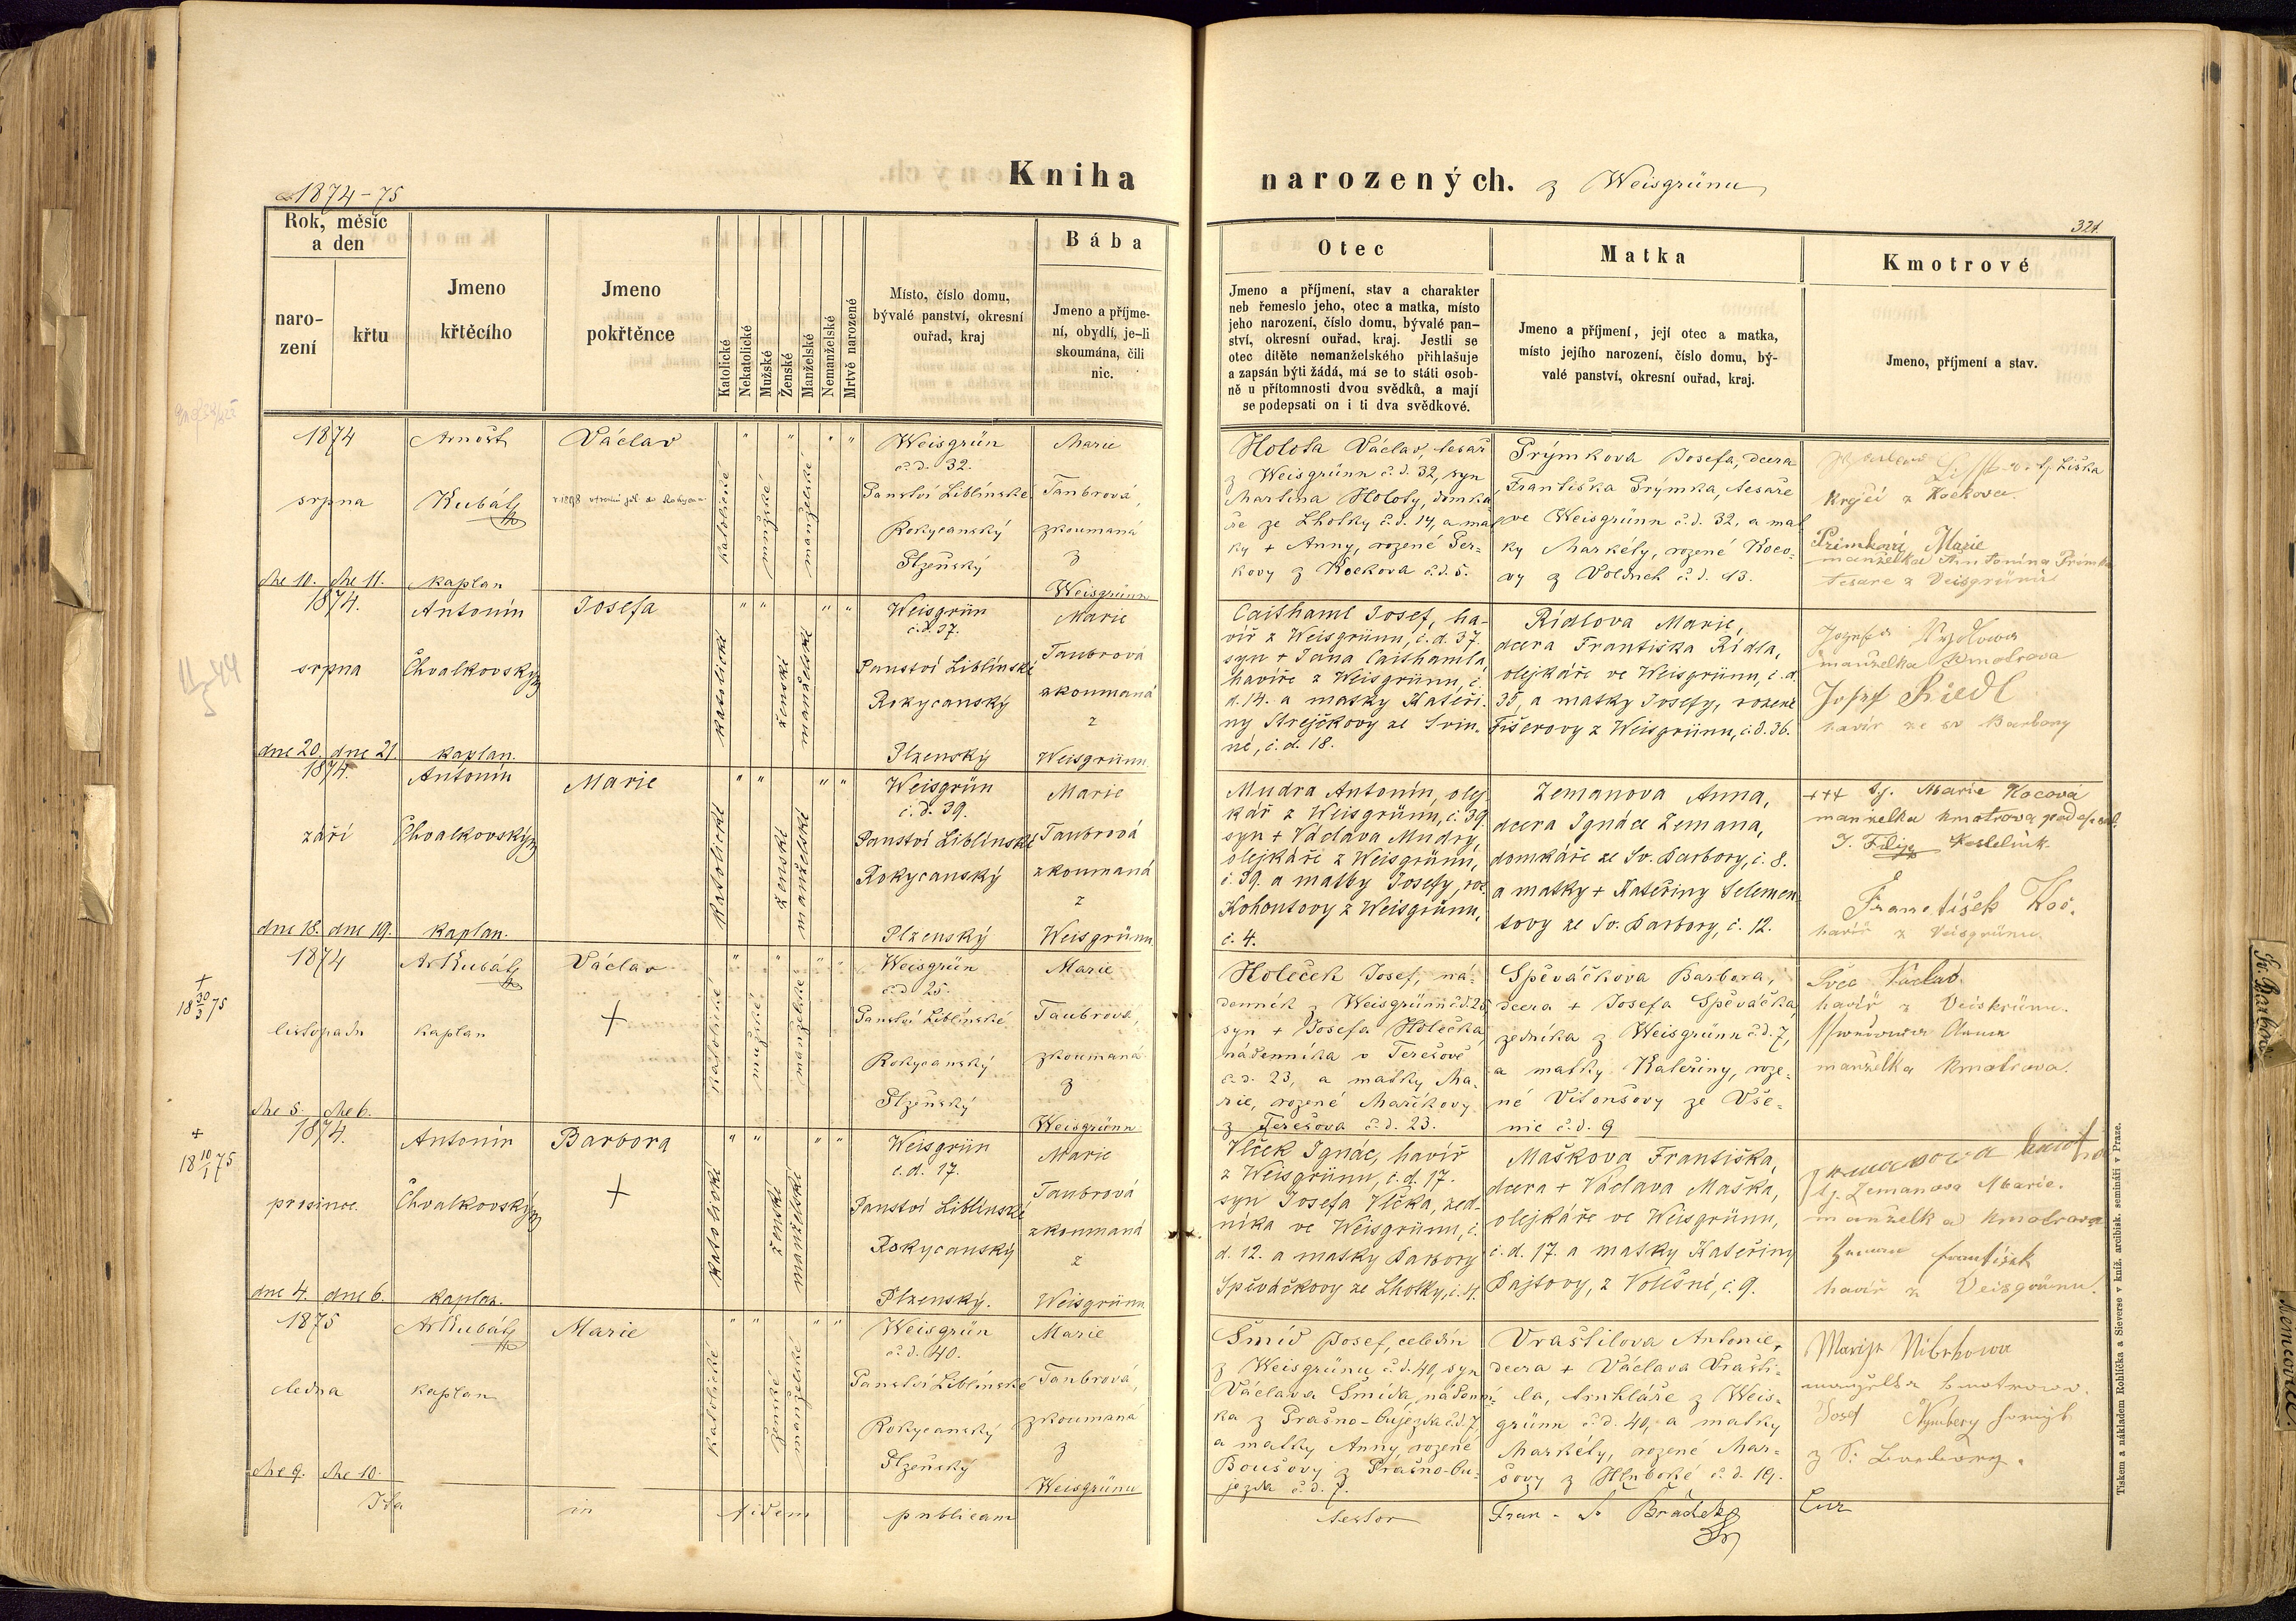 1874-75
Kniha narozených. z Weisgrünu
321.
Rok, měsíc
a den
naro-
zení
křtu
Jmeno
křtěcího
Jmeno
pokřtěnce
Katolické
Nekatolické
Mužské
Ženské
Manželské
Nemanželské
Mrtvě narozené
Místo, číslo domu,
bývalé panství, okresní
ouřad, kraj
Bába
Jmeno a příjme-
ní, obydlí, je-li
skoumána, čili
nic.
Otec
Jmeno a příjmení, stav a charakter
neb řemeslo jeho, otec a matka, místo
jeho narození, číslo domu, bývalé pan-
ství, okresní ouřad, kraj. Jestli se
otec dítěte nemanželského přihlašuje
a zapsán býti žádá, má se to státi osob-
ně u přítomnosti dvou svědků, a mají
se podepsati on i ti dva svědkové.
Matka
Jmeno a příjmení, její otec a matka,
místo jejího narození, číslo domu, bý-
valé panství, okresní ouřad, kraj.
Kmotrové
Jmeno, příjmení a stav.
1874
srpna
dne 10. dne 11.
Arnošt
Kubát
kaplan
Václav
katolické
mužské
manželské
Weisgrün
č. d. 32.
Panství Liblínské
Rokycanský
Plzeňský
Marie
Taubrová,
zkoumaná
z
Weisgrünu
Holota Václav, tesař
z Weisgrünu č. d. 32, syn
Martina Holoty, domká
ře ze Lhotky č. d. 14, a mat
ky + Anny, rozené Ter-
kovy z Kockova č. d. 5.
Prýmkova Josefa, dcera
Františka Prýmka, tesaře
ve Weisgrünu č. d. 32, a mat
ky Markéty, rozené Koco-
vy z Volšneh č. d. 13.
tj. Liška
Krejčí z Kockova.
Primkovi Marie
manželka Antonína Primka
tesaře z Veisgrünu
1874.
srpna
dne 20. dne 21.
Antonín
Chvalkovský
kaplan.
Josefa
katolické
ženské
manželské
Weisgrün
č. d. 37.
Panství Liblínské
Rokycanský
Plzenský
Marie
Taubrová
zkoumaná
z
Weisgrünu.
Caithaml Josef, ha-
víř z Weisgrünu, č. d. 37.
syn + Jana Caithamla,
havíře z Weisgrünu, č.
d. 14. a matky Kateři-
ny Strejčkovy ze Svin-
né, č. d. 18.
Rídlova Marie,
dcera Františka Rídla,
olejkáře ve Weisgrünu, č. d.
35, a matky Josefy, rozené
Fišerovy z Weisgrünu, č. d. 36.
manželka Kmotrova
Josef Riedl
havíř ze sv Barbory
1874.
září
dne 18. dne 19.
Antonín
Chvalkovský
kaplan.
Marie
katolické
ženské
manželské
Weisgrün
č. d. 39.
Panství Liblínské
Rokycanský
Plzenský
Marie
Taubrová
zkoumaná
z
Weisgrünu
Mudra Antonín, olej-
kář z Weisgrünu, č. 39.
syn + Václava Mudry,
olejkáře z Weisgrünu,
č. 39. a matky Josefy, roz.
Kohoutovy z Weisgrünu,
č. 4.
Zemanova Anna,
dcera Ignáce Zemana,
domkáře ze Sv. Barbory, č. 8.
a matky + Kateřiny Selemen
tovy ze Sv. Barbory, č. 12.
+++ tj. Marie Kocová
manželka kmotrova podepsal.
J. Filip Kostelník.
František Koc.
havíř z Veisgrünu.
+
18 30/3 75
1874
listopadu
dne 5. dne 6.
Ar Kubát
kaplan
Václav
+
katolické
mužské
manželské
Weisgrün
č. d. 25.
Panství Liblínské
Rokycanský
Plzeňský
Marie
Taubrova,
zkoumaná
z
Weisgrünu
Holeček Josef, ná-
denník z Weisgrünu č. d. 25
syn + Josefa Holečka,
nádenníka v Terešově
č. d. 23, a matky Ma-
rie, rozené Maříkovy
z Terešova č. d. 23.
Spěváčkova Barbora,
dcera + Josefa Spěváčka,
zedníka z Weisgrünu č. d. 7,
a matky Kateřiny, roze-
né Vitoušovy ze Vše-
nic č. d. 9
Švec Václav.
havíř z Veiskrünu.
Anna
manželka kmotrova.
+
18 10/1 75
1874.
prosince.
dne 4. dne 6.
Antonín
Chvalkovský
kaplan.
Barbora
+
katolické
ženské
manželské
Weisgrün
č. d. 17.
Panství Liblínské
Rokycanský
Plzenský.
Marie
Taubrová
zkoumaná
z
Weisgrünu
Vlček Ignác, havíř
z Weisgrünu, č. d. 17.
syn Josefa Vlčka, zed-
níka ve Weisgrünu, č.
d. 12. a matky Barbory
Spěváčkovy ze Lhotky, č. 4.
Maškova Františka,
dcera + Václava Maška,
olejkáře ve Weisgrünu,
č. d. 17. a matky Kateřiny
Pajtovy, z Volešné, č. 9.
tj. Zemanova Marie.
manželka kmotrova
Zeman František
havíř z Veisgrünu.
1875
ledna
dne 9. dne 10.
Ar Kubát
kaplan
Marie
katolické
ženské
manželské
Weisgrün
č. d. 40.
Panství Liblínské
Rokycanský
Plzeňský
Marie
Taubrová,
zkoumaná
z
Weisgrünu
Šmíd Josef, čeledín
z Weisgrünu č. d. 40, syn
Václava Šmída, nádenní-
ka z Prašno-Aujezda č. d. 7,
a matky Anny, rozené
Boušovy z Prašno-Au-
jezda č. d. 7.
Vraštilova Antonie,
dcera + Václava Vrašti-
la, truhláře z Weis-
grünu č. d. 40, a matky
Markéty, rozené Mar-
šovy z Hluboké č. d. 19.
manželka kmotrova.
Josef
Ita in fidem publicam
testor Fran. Brádek